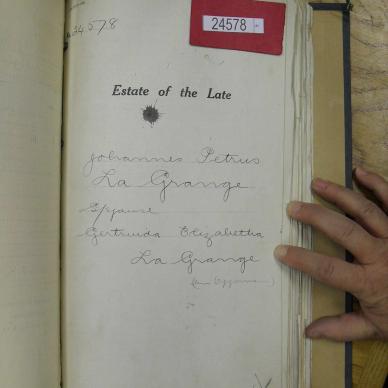 24578
24578
Estate of the Late
Johannes Petrus
La Grange
Gertruida Elizabetha
La Grange